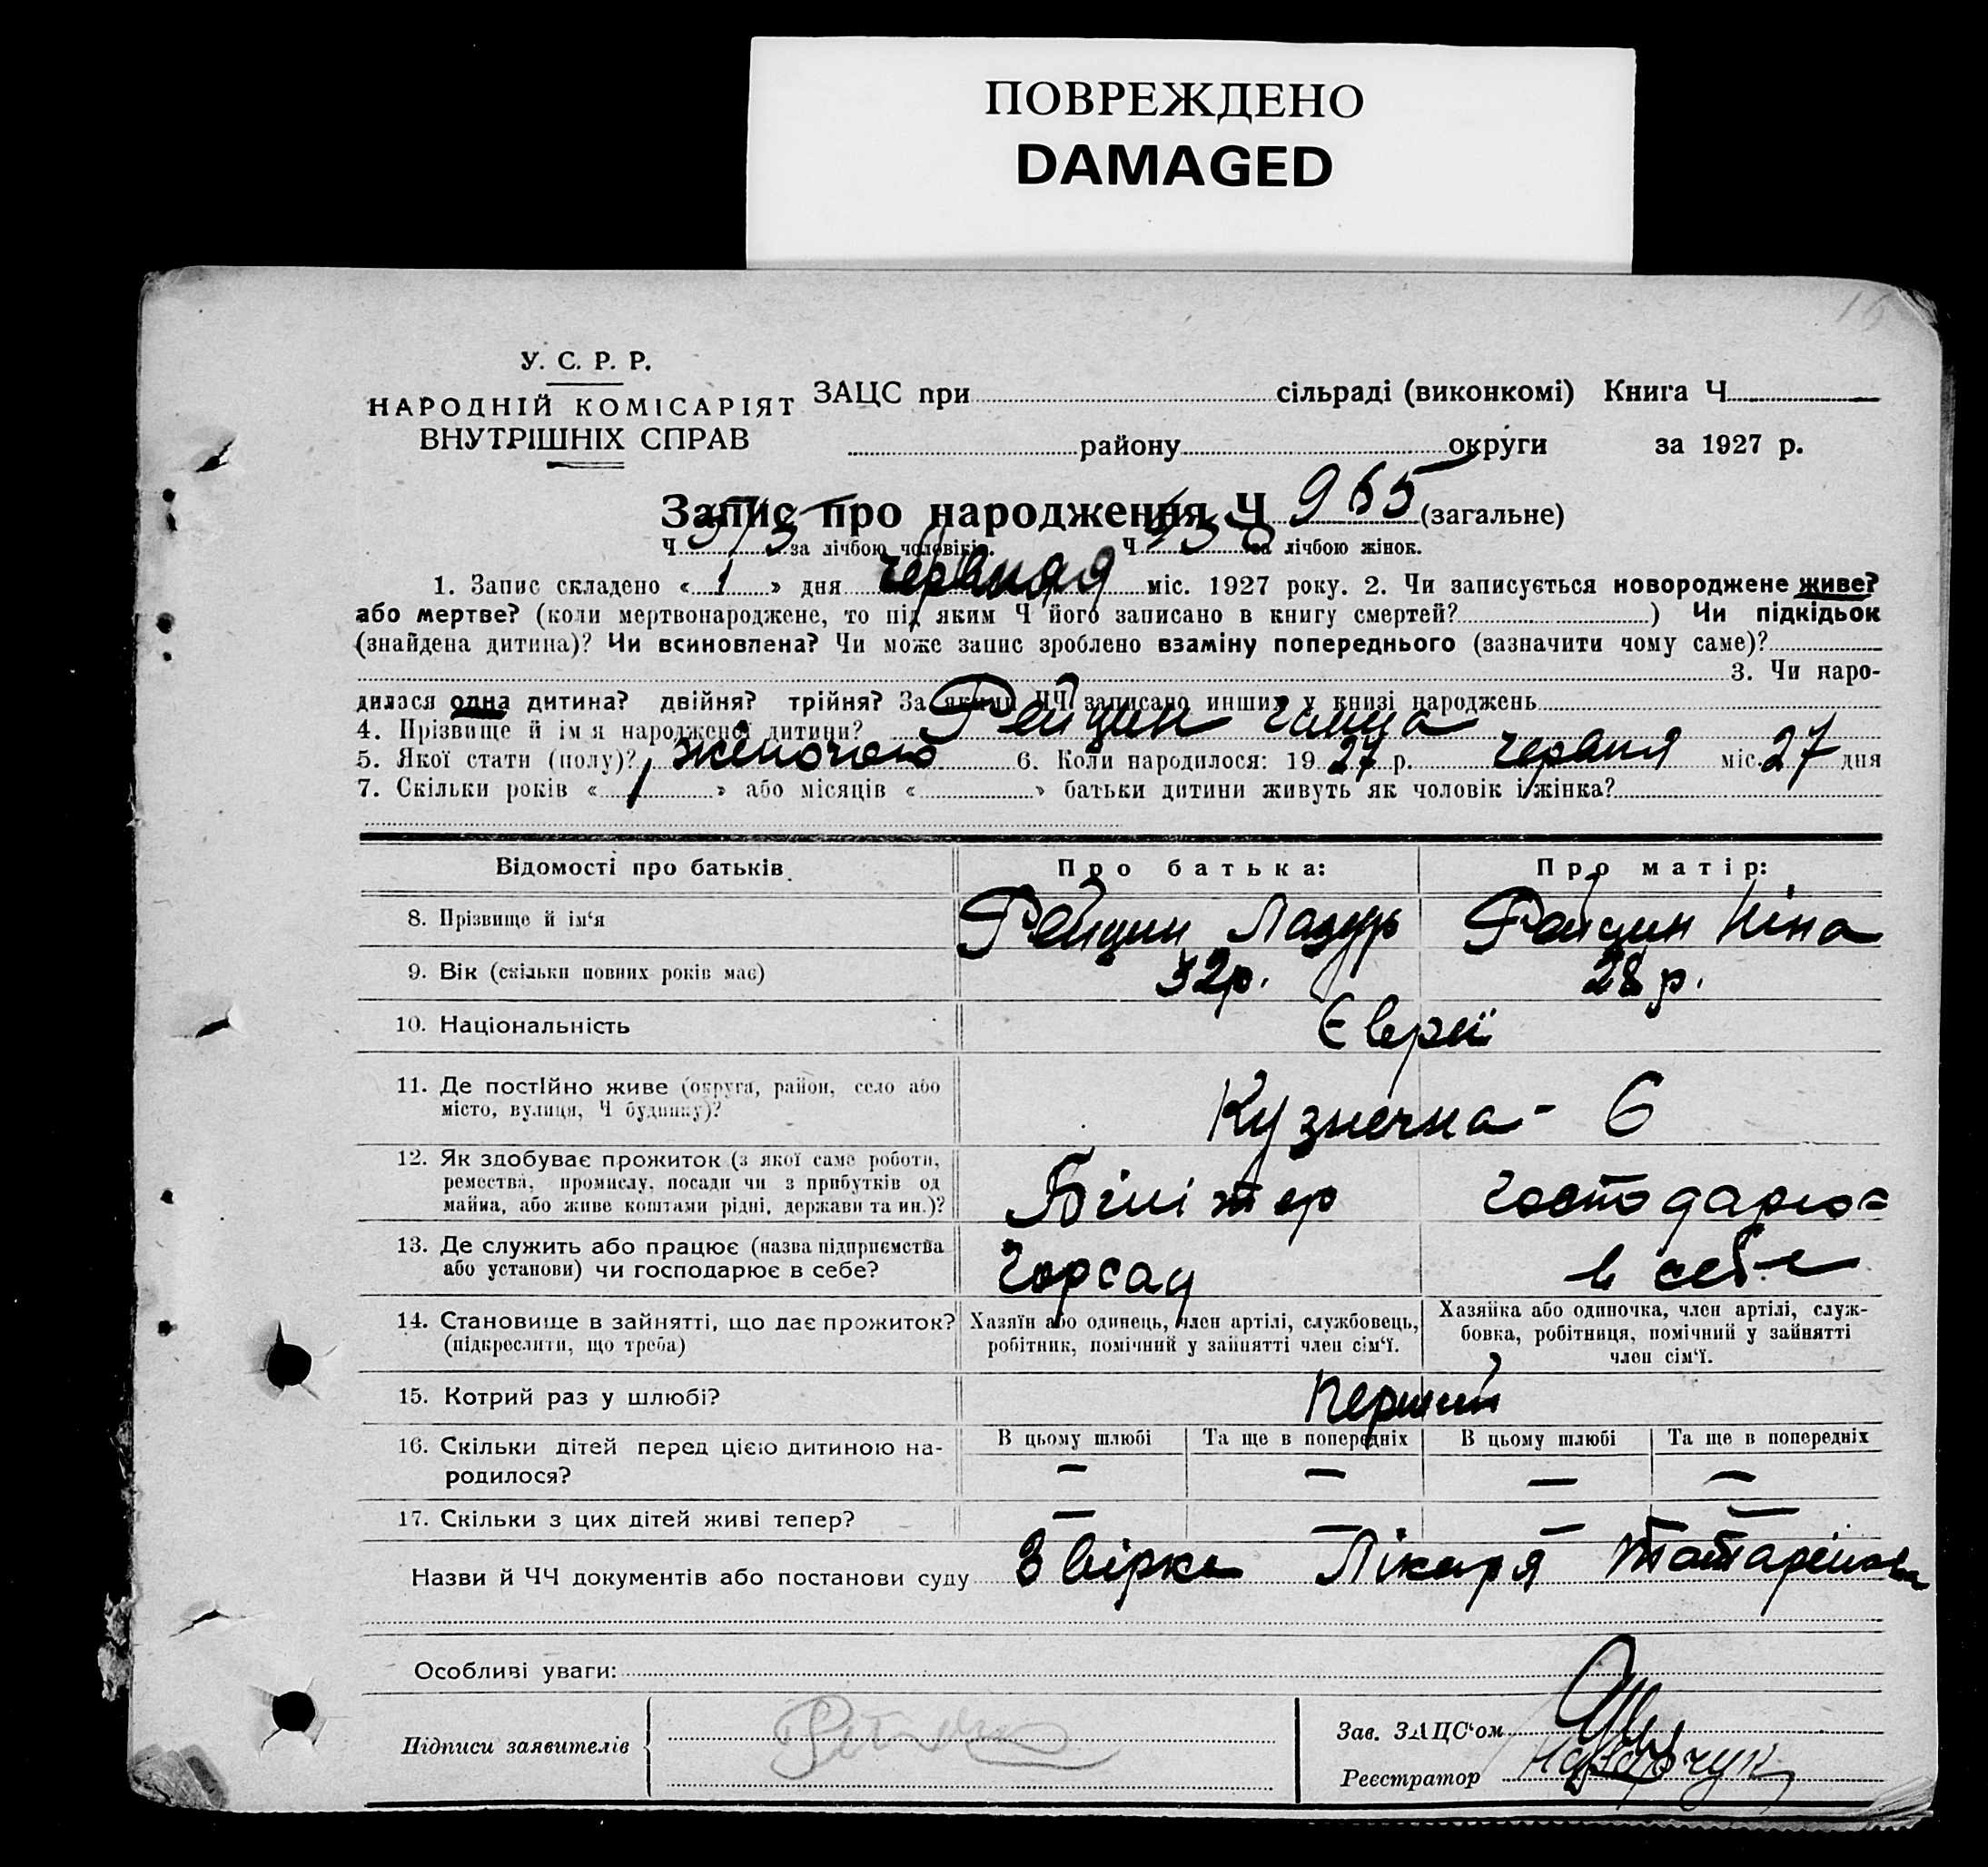 ПОВРЕЖДЕНО
DAMAGED
16
У. С. Р. Р.
НАРОДНІЙ КОМІСАРІЯТ
ВНУТРІШНІХ СПРАВ
ЗАЦС при сільраді (виконкомі) Книга Ч
району округи за 1927 р.
Запис про народження Ч 965 (загальне)
Ч за лічбою чоловіків. Ч за лічбою жінок.
1. Запис складено « 1 » дня червня міс. 1927 року. 2. Чи записується новороджене живе?
або мертве? (коли мертвонароджене, то під яким Ч його записано в книгу смертей? ) Чи підкідьок
(знайдена дитина)? Чи всиновлена? Чи може запис зроблено взаміну попереднього (зазначити чому саме)?
3. Чи наро-
дилася одна дитина? двійня? трійня? За якими ЧЧ записано инших у книзі народжень
4. Прізвище й ім'я народженої дитини? Рейцин
5. Якої стати (полу)? жіночою 6. Коли народилося: 1927 р. червня міс. 27 дня
7. Скільки років « 1 » або місяців « » батьки дитини живуть як чоловік і жінка?
Відомості про батьків Про батька: Про матір:
8. Прізвище й ім'я Рейцин Лазурь Рейцин Ніна
9. Вік (скільки повних років має) 32р. 28 р.
10. Національність Євреї
11. Де постійно живе (округа, район, село або
місто, вулиця, Ч будинку)? Кузнечна - 6
12. Як здобуває прожиток (з якої саме роботи,
ремества, промислу, посади чи з прибутків од
майна, або живе коштами рідні, держави та ин.)? Білітер Господарює
13. Де служить або працює (назва підприємства
або установи) чи господарює в себе? Горсад в себе
14. Становище в зайнятті, що дає прожиток?
(підкреслити, що треба)
Хазяїн або одинець, член артілі, службовець,
робітник, помічний у зайнятті член сім'ї.
Хазяйка або одиночка, член артілі, служ-
бовка, робітниця, помічний у зайнятті
член сім'ї.
15. Котрий раз у шлюбі? Перший
16. Скільки дітей перед цією дитиною на-
родилося?
В цьому шлюбі Та ще в попередніх В цьому шлюбі Та ще в попередніх
— — — —
17. Скільки з цих дітей живі тепер? — — — —
Назви й ЧЧ документів або постанови суду Звірка Лікаря
Особливі уваги:
Підписи заявителів
Зав. ЗАЦС'ом
Реєстратор